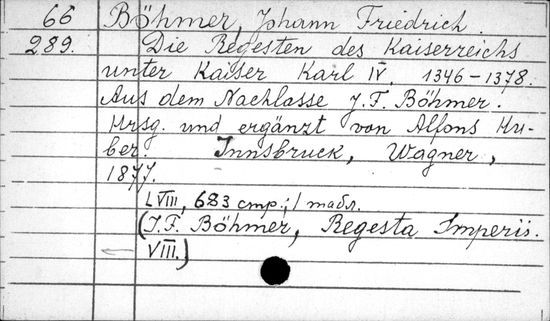 66 Böhmer, Johann Friedrich.
289. Die Regesten des Kaiserreichs
unter Kaiser Karl IV. 1346-1378.
Aus dem Nachlasse J.F. Böhmer.
Hrsg. und ergänzt von Alfons Hu-
ber. Innsbruck, Wagner,
1877.
LVIII, 683 стр.; 1 табл.
(J.F. Böhmer, Regesta Imperii.
VIII.)